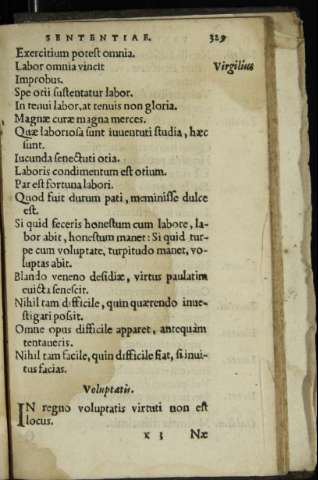 SENTENTIAE. 329
Exercitium potest omnia.
Labor omnia vincit Virgilius
Improbus.
Spe otii sustentatur labor.
In tenui labor, at tenuis non gloria.
Magnæ curæ magna merces.
Quæ laboriosa sunt iuuentuti studia, hæc
sunt.
Iucunda senectuti otia.
Laboris condimentum est otium.
Par est fortuna labori.
Quod fuit durum pati, meminisse dulce
est.
Si quid feceris honestum cum labore, la-
bor abit, honestum manet: Si quid tur-
pe cum voluptate, turpitudo manet, vo-
luptas abit.
Blando veneno desidiæ, virtus paulatim
euicta senescit.
Nihil tam difficile, quin quærendo inue-
stigari possit.
Omne opus difficile apparet, antequàm
tentaueris.
Nihil tam facile, quin difficile fiat, si inui-
tus facias.
Voluptatis.
IN regno voluptatis virtuti non est
locus.
x 3 Næ